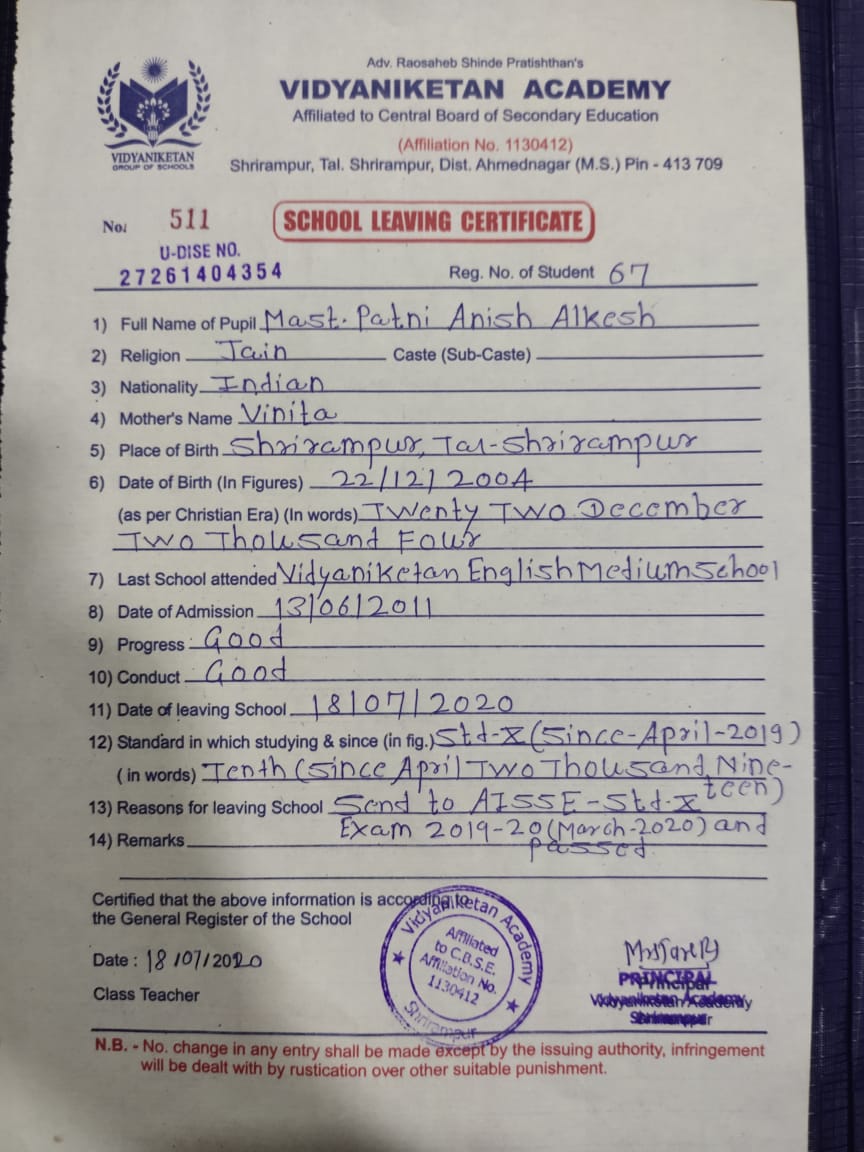 Adv. Raosaheb Shinde Pratishthan's
VIDYANIKETAN ACADEMY
Affiliated to Central Board of Secondary Education
(Affiliation No. 1130412)
Shrirampur, Tal. Shrirampur, Dist. Ahmednagar (M.S.) Pin - 413 709
VIDYANIKETAN
GROUP OF SCHOOLS
No. 511
SCHOOL LEAVING CERTIFICATE
U-DISE NO.
27261404354
Reg. No. of Student 67
1) Full Name of Pupil Mast. Patni Anish Alkesh
2) Religion Jain Caste (Sub-Caste)
3) Nationality Indian
4) Mother's Name Vinita
5) Place of Birth Shrirampur, Tal-Shrirampur
6) Date of Birth (In Figures) 22/12/2004
(as per Christian Era) (In words) Twenty Two December
Two Thousand Four
7) Last School attended Vidyaniketan English Medium School
8) Date of Admission 13/06/2011
9) Progress Good
10) Conduct Good
11) Date of leaving School 18/07/2020
12) Standard in which studying & since (in fig.) Std-X (Since-April-2019)
(in words) Tenth (Since April Two Thousand Nine-
teen)
13) Reasons for leaving School Send to AISSE-Std-X
Exam 2019-20 (March-2020) and
14) Remarks passed.
Certified that the above information is according to
the General Register of the School
Date : 18/07/2020
Class Teacher
Vidyaniketan Academy
Affiliated
to C.B.S.E.
Affiliation No.
1130412
Shrirampur
PRINCIPAL
Principal
Vidyaniketan Academy
Shrirampur
N.B. - No. change in any entry shall be made except by the issuing authority, infringement
will be dealt with by rustication over other suitable punishment.